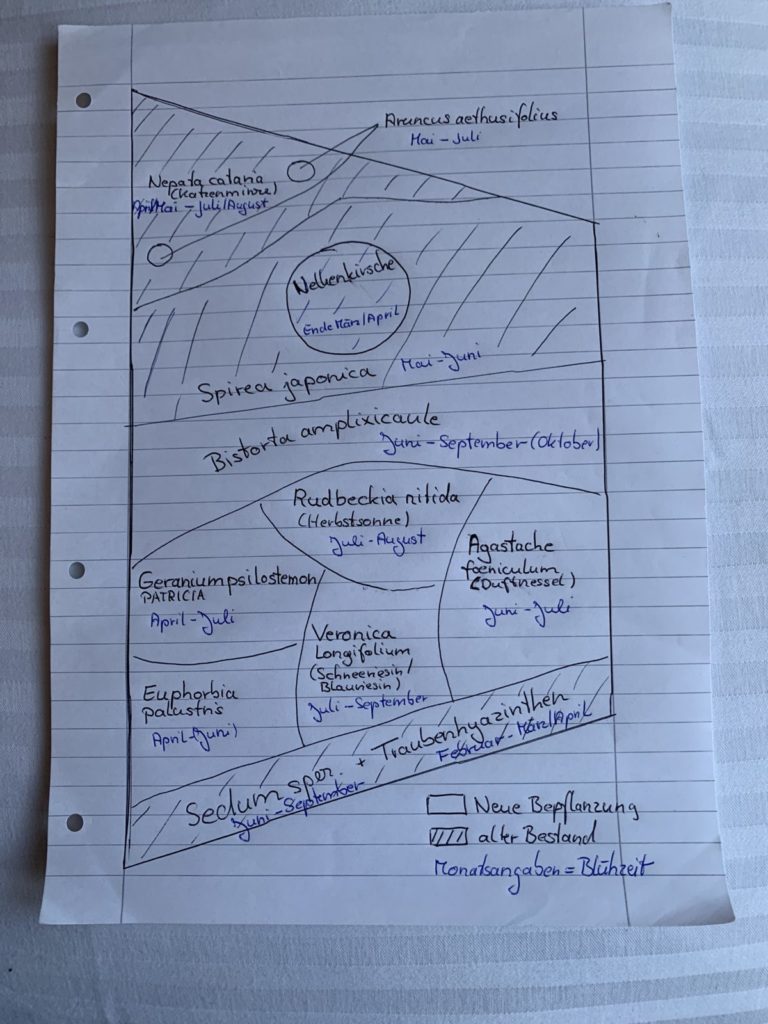 Aruncus aethusifolius
Mai - Juli
Nepata cataria
(Katzenminze)
April/Mai - Juli/August
Nelkenkirsche
Ende März/April
Spirea japonica
Mai - Juni
Bistorta amplixicaule
Juni - September (Oktober)
Rudbeckia nitida
(Herbstsonne)
Juli - August
Agastache
foeniculum
(Duftnessel)
Juni - Juli
Geranium psilostemon
PATRICIA
April - Juli
Veronica
Longifolium
(Schneeriesin/
Blauriesin)
Juli - September
Euphorbia
palustris
April - (Juni)
Sedum sper. + Traubenhyazinthen
Juni - September
Februar - März/April
Neue Bepflanzung
alter Bestand
Monatsangaben = Blühzeit